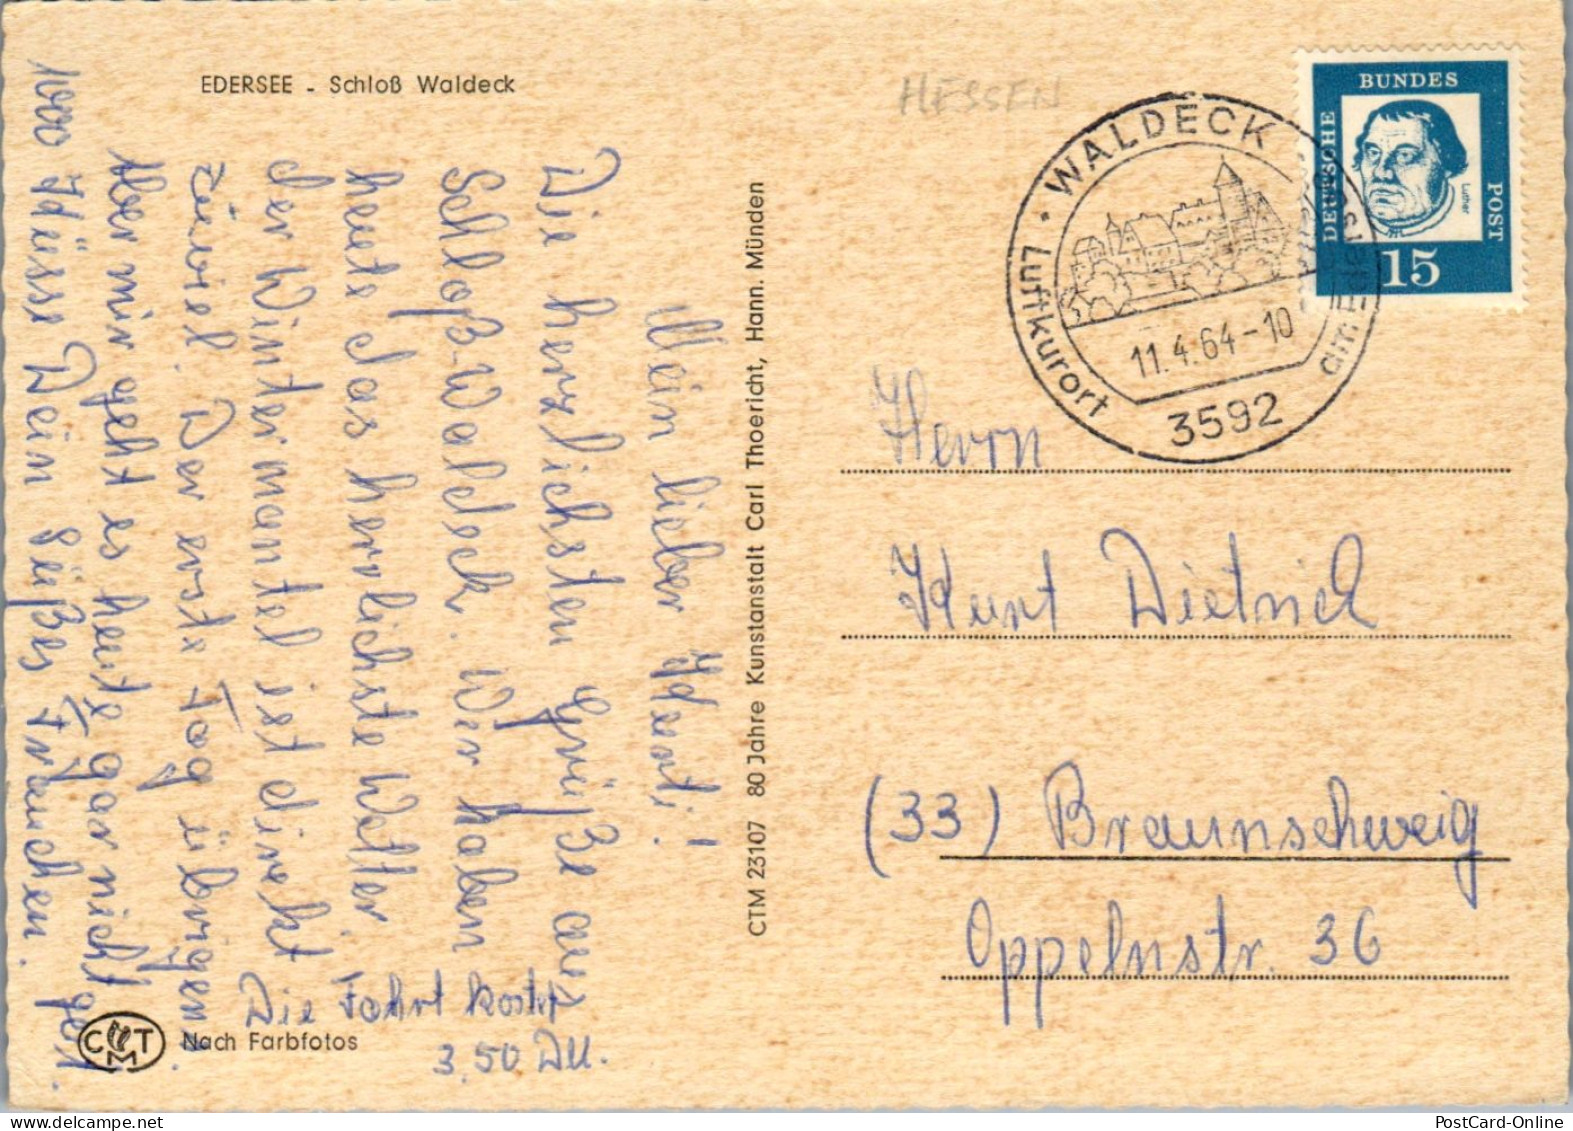 EDERSEE - Schloß Waldeck
HESSEN
Mein lieber Kurti!
Die herzlichsten Grüße aus
Schloß-Waldeck. Wir haben
heute das herrlichste Wetter
der Wintermantel ist direkt
zuviel. Der erste Tag übrigens
Aber mir geht es heute gar nicht gut.
1000 Küsse Dein süßes Frauchen.
Die Fahrt kostet
3,50 DM.
C T M
Nach Farbfotos
CTM 23107 80 Jahre Kunstanstalt Carl Thoericht, Hann. Münden
WALDECK
am Edersee
Luftkurort
11.4.64-10
3592
DEUTSCHE
BUNDES
POST
Luther
15
Herrn
Kurt Dietrich
(33) Braunschweig
Oppelnstr. 36
PostCard-Online.com